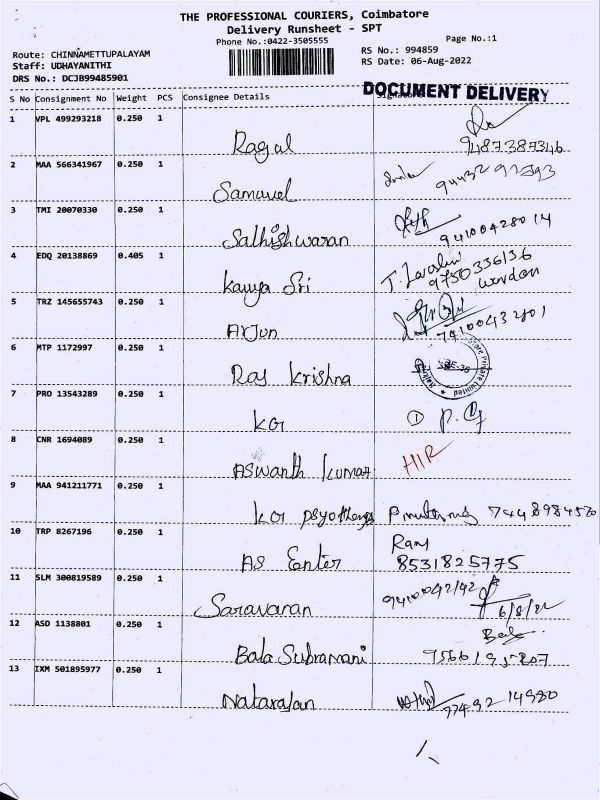 THE PROFESSIONAL COURIERS, Coimbatore
Delivery Runsheet - SPT
Phone No.:0422-3505555 Page No.:1
Route: CHINNAMETTUPALAYAM RS No.: 994859
Staff: UDHAYANITHI RS Date: 06-Aug-2022
DRS No.: DCJB99485901
DOCUMENT DELIVERY
S No Consignment No Weight PCS Consignee Details
1 VPL 499293218 0.250 1
Ragal 9487387346
2 MAA 566341967 0.250 1
Samuvel
3 TMI 20070330 0.250 1
Salhishwaran 94100428014
4 EDQ 20138869 0.405 1
Kavya Sri 9750336136
Wardan
5 TRZ 145655743 0.250 1
Arjun
6 MTP 1172997 0.250 1
Raj Krishna
7 PRO 13543289 0.250 1
KGI
8 CNR 1694089 0.250 1
Aswanth Kumar
9 MAA 941211771 0.250 1
7448984520
10 TRP 8267196 0.250 1 Ram
AS Enter 8531825775
11 SLM 300819589 0.250 1
Saravanan 6/8/22
12 ASD 1138801 0.250 1
Bala Subramani
13 IXM 501895977 0.250 1
Natarajan 77492 14980